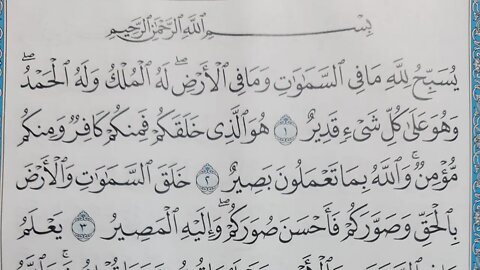 بِسْمِ اللَّهِ الرَّحْمَٰنِ الرَّحِيمِ
يُسَبِّحُ لِلَّهِ مَا فِي السَّمَاوَاتِ وَمَا فِي الْأَرْضِ ۖ لَهُ الْمُلْكُ وَلَهُ الْحَمْدُ ۖ
وَهُوَ عَلَىٰ كُلِّ شَيْءٍ قَدِيرٌ ١ هُوَ الَّذِي خَلَقَكُمْ فَمِنكُمْ كَافِرٌ وَمِنكُم
مُّؤْمِنٌ ۚ وَاللَّهُ بِمَا تَعْمَلُونَ بَصِيرٌ ٢ خَلَقَ السَّمَاوَاتِ وَالْأَرْضَ
بِالْحَقِّ وَصَوَّرَكُمْ فَأَحْسَنَ صُوَرَكُمْ ۖ وَإِلَيْهِ الْمَصِيرُ ٣ يَعْلَمُ